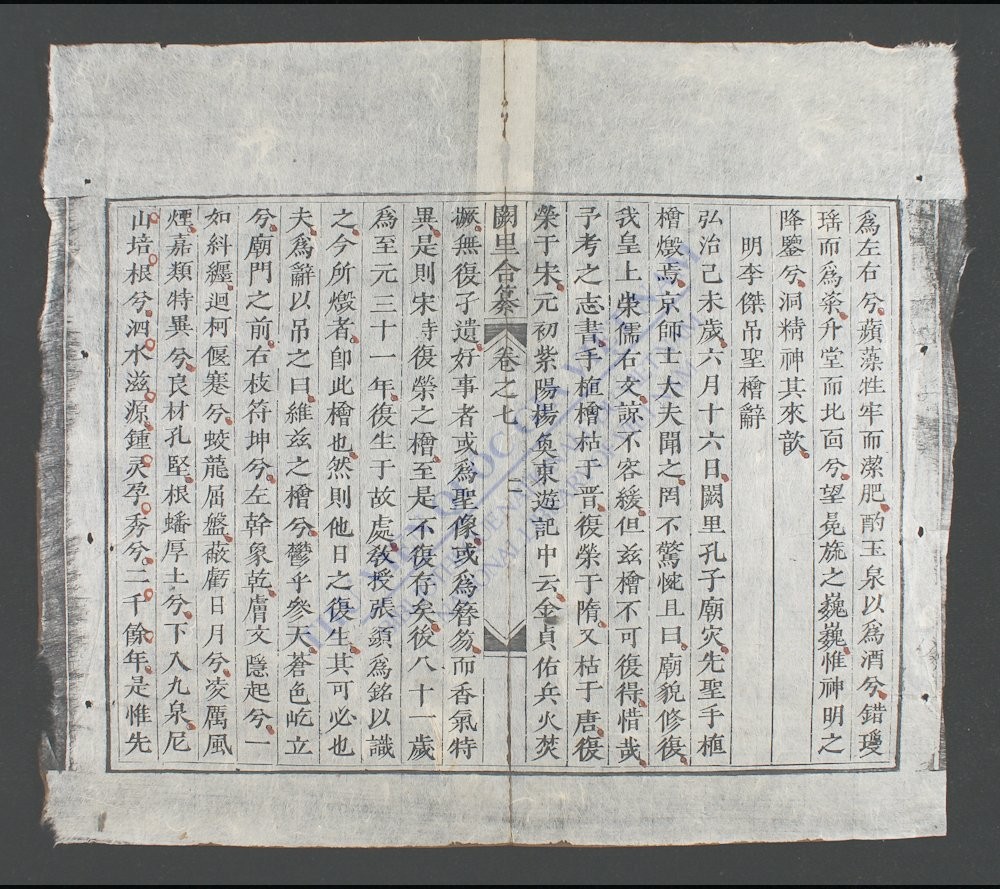 爲左右兮蘋藻牲牢而潔肥酌玉泉以爲酒兮錯瓊
瑤而爲粢升堂而北面兮望冕旒之巍巍惟神明之
降鑒兮洞精神其來歆
明李傑吊聖檜辭
弘治己未歲六月十六日闕里孔子廟灾先聖手植
檜燬焉京師士大夫聞之罔不驚悼且曰廟貌修復
我皇上崇儒右文諒不容緩但兹檜不可復得惜哉
予考之志書手植檜枯于晋復榮于隋又枯于唐復
榮于宋元初紫陽楊奐東遊記中云金貞佑兵火焚
闕里合纂 卷之七 二
蹶無復孑遺好事者或爲聖像或爲簪笏而香氣特
異是則宋時復榮之檜至是不復存矣後八十一歲
爲至元三十一年復生于故處敎授張𩓐爲銘以識
之今所燬者卽此檜也然則他日之復生其可必也
夫爲辭以吊之曰維兹之檜兮鬱乎參天蒼色屹立
兮廟門之前右枝符坤兮左幹象乾膚文隱起兮一
如糾纒迴柯偃蹇兮蛟龍屈盤蔽虧日月兮凌厲風
煙嘉類特異兮良材孔堅根蟠厚土兮下入九泉尼
山培根兮泗水滋源鍾灵孕秀兮二千餘年是惟先